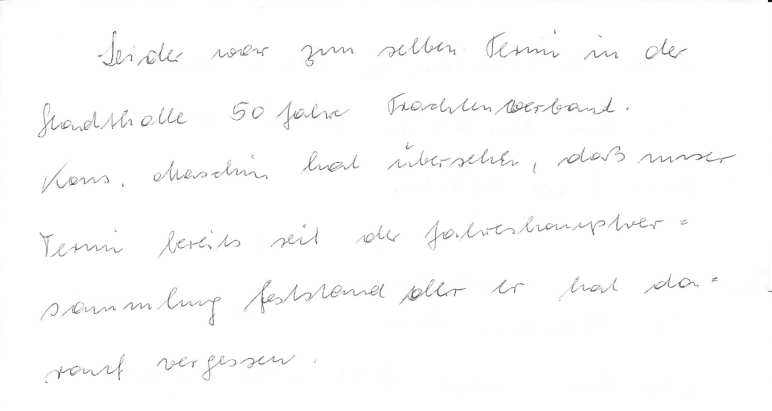 Leider war zum selben Termin in der
Stadthalle 50 Jahre Trachtenverband.
Kons. Maschin hat übersehen, daß unser
Termin bereits seit der Jahreshauptver=
sammlung feststand oder er hat da=
rauf vergessen.